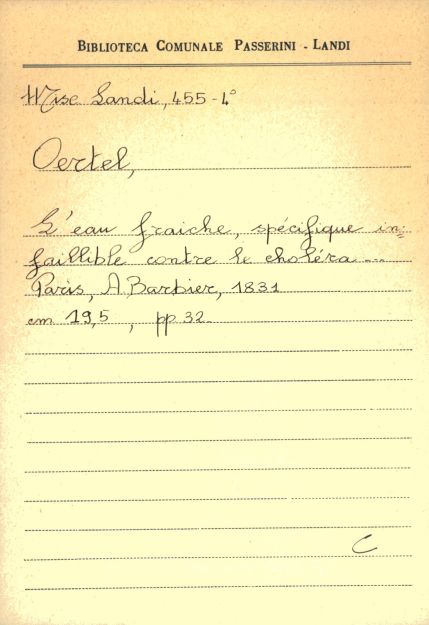 BIBLIOTECA COMUNALE PASSERINI - LANDI
Misc Landi, 455-4°
Oertel,
L'eau fraiche, spécifique in=
faillible contre le choléra ...
Paris, A. Barbier, 1831
cm 19,5 , pp 32.
C